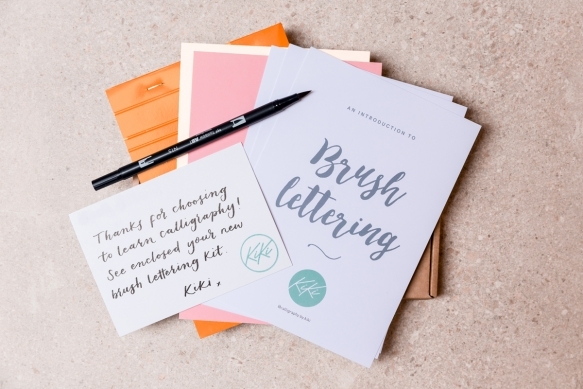 AN INTRODUCTION TO
Brush
lettering
KiKi
Thanks for choosing
to learn calligraphy!
See enclosed your new
brush lettering kit.
KiKi x
KiKi